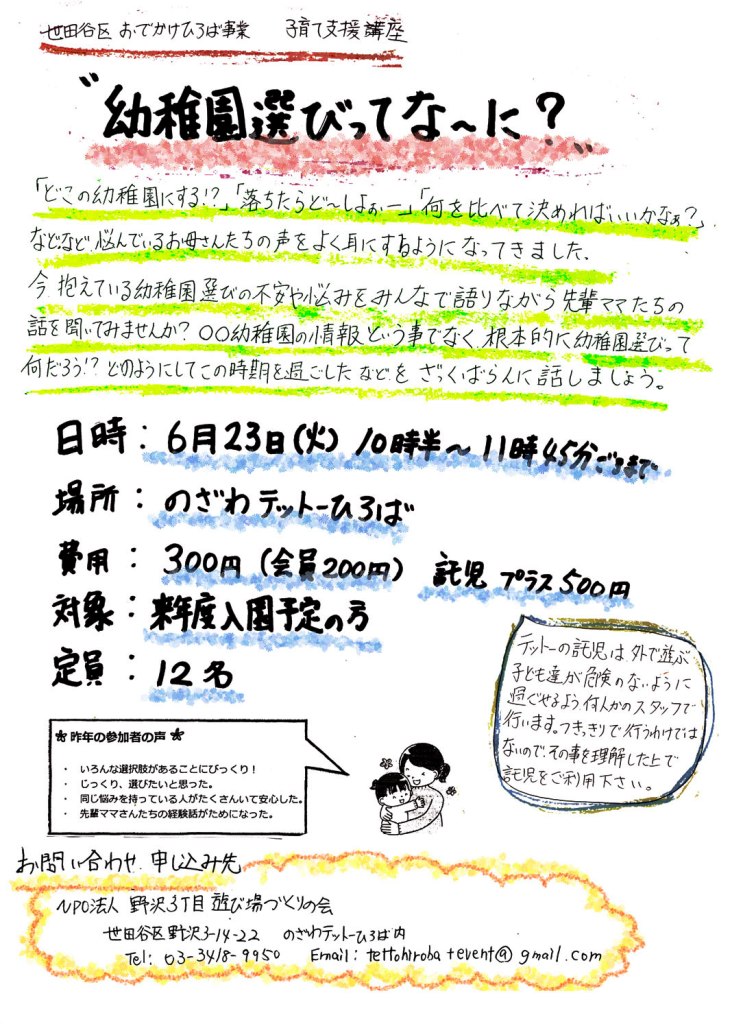 世田谷区 おでかけひろば事業 子育て支援講座
“幼稚園選びってな～に？”
「どこの幼稚園にする!?」「落ちたらど～しよぉー」「何を比べて決めればいいかなぁ?」
などなど、悩んでいるお母さんたちの声をよく耳にするようになってきました。
今、抱えている幼稚園選びの不安や悩みをみんなで語りながら先輩ママたちの
話を聞いてみませんか？○○幼稚園の情報という事でなく、根本的に幼稚園選びって
何だろう!? どのようにしてこの時期を過ごしたなどを ざっくばらんに話しましょう。
日時：6月23日(火) 10時半～11時45分ごろまで
場所：のざわテットーひろば
費用：300円（会員200円） 託児 プラス500円
対象：来年度入園予定の方
定員：12名
テットーの託児は外で遊ぶ
子ども達が危険のないように
過ごせるよう何人かのスタッフで
行います。つきっきりで行うわけでは
ないので、その事を理解した上で
託児をご利用下さい。
昨年の参加者の声
・ いろんな選択肢があることにびっくり！
・ じっくり、選びたいと思った。
・ 同じ悩みを持っている人がたくさんいて安心した。
・ 先輩ママさんたちの経験話がためになった。
お問い合わせ、申し込み先
NPO法人 野沢3丁目遊び場づくりの会
世田谷区野沢3-14-22 のざわテットーひろば内
Tel: 03-3418-9950 Email: tettohiroba+event@gmail.com